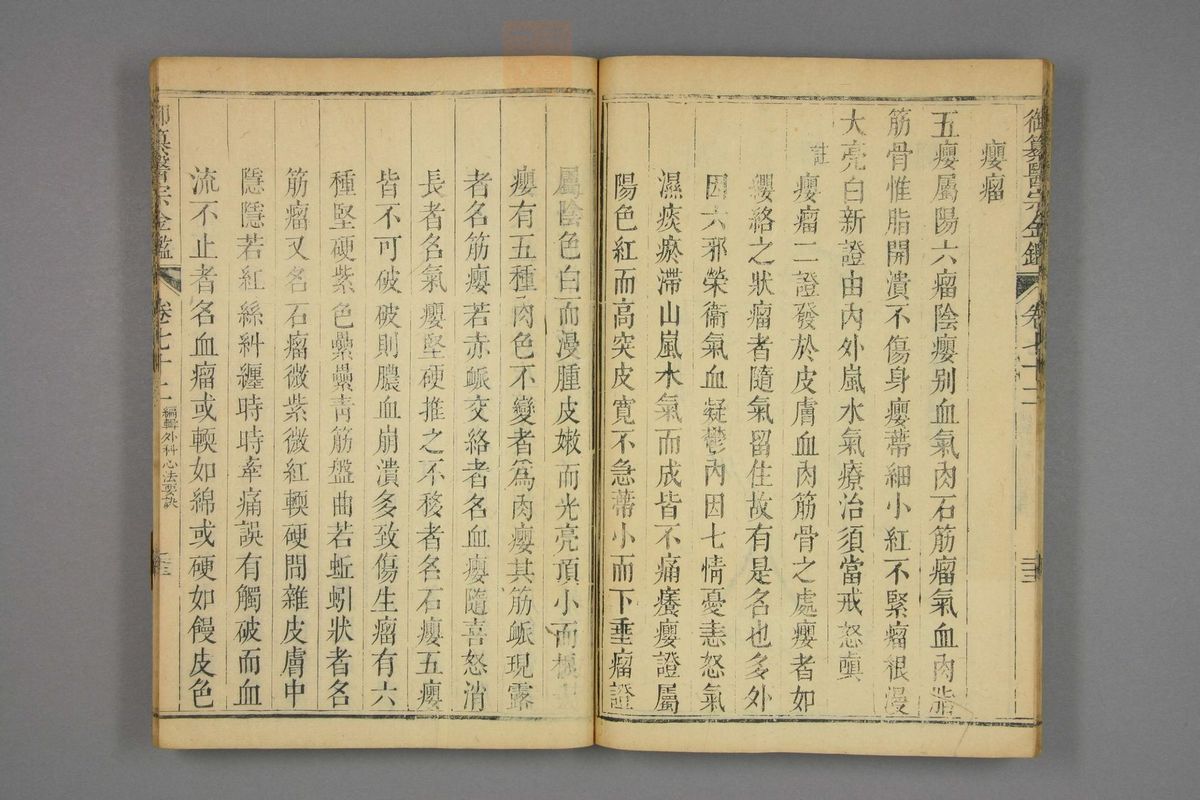 御纂醫宗金鑑 卷七十二
癭瘤
五癭屬陽六瘤陰癭别血氣肉石筋瘤氣血肉脂
筋骨惟脂開潰不傷身癭蒂細小紅不緊瘤根漫
大亮白新證由內外嵐水氣療治須當戒怒嗔
註
癭瘤二證發於皮膚血肉筋骨之處癭者如
纓絡之狀瘤者隨氣留住故有是名也多外
因六邪榮衞氣血凝鬱內因七情憂恚怒氣
濕痰瘀滯山嵐水氣而成皆不痛癢癭證屬
陽色紅而高突皮寛不急蒂小而下垂瘤證
屬陰色白而漫腫皮嫩而光亮頂小而根
癭有五種肉色不變者爲肉癭其筋脈現露
者名筋癭若赤脈交絡者名血癭隨喜怒消
長者名氣癭堅硬推之不移者名石癭五癭
皆不可破破則膿血崩潰多致傷生瘤有六
種堅硬紫色纍纍青筋盤曲若蚯蚓狀者名
筋瘤又名石瘤微紫微紅輭硬間雜皮膚中
隱隱若紅絲糾纏時時牽痛誤有觸破而血
流不止者名血瘤或輭如綿或硬如饅皮色
御纂醫宗金鑑 卷七十二 編輯外科心法要訣